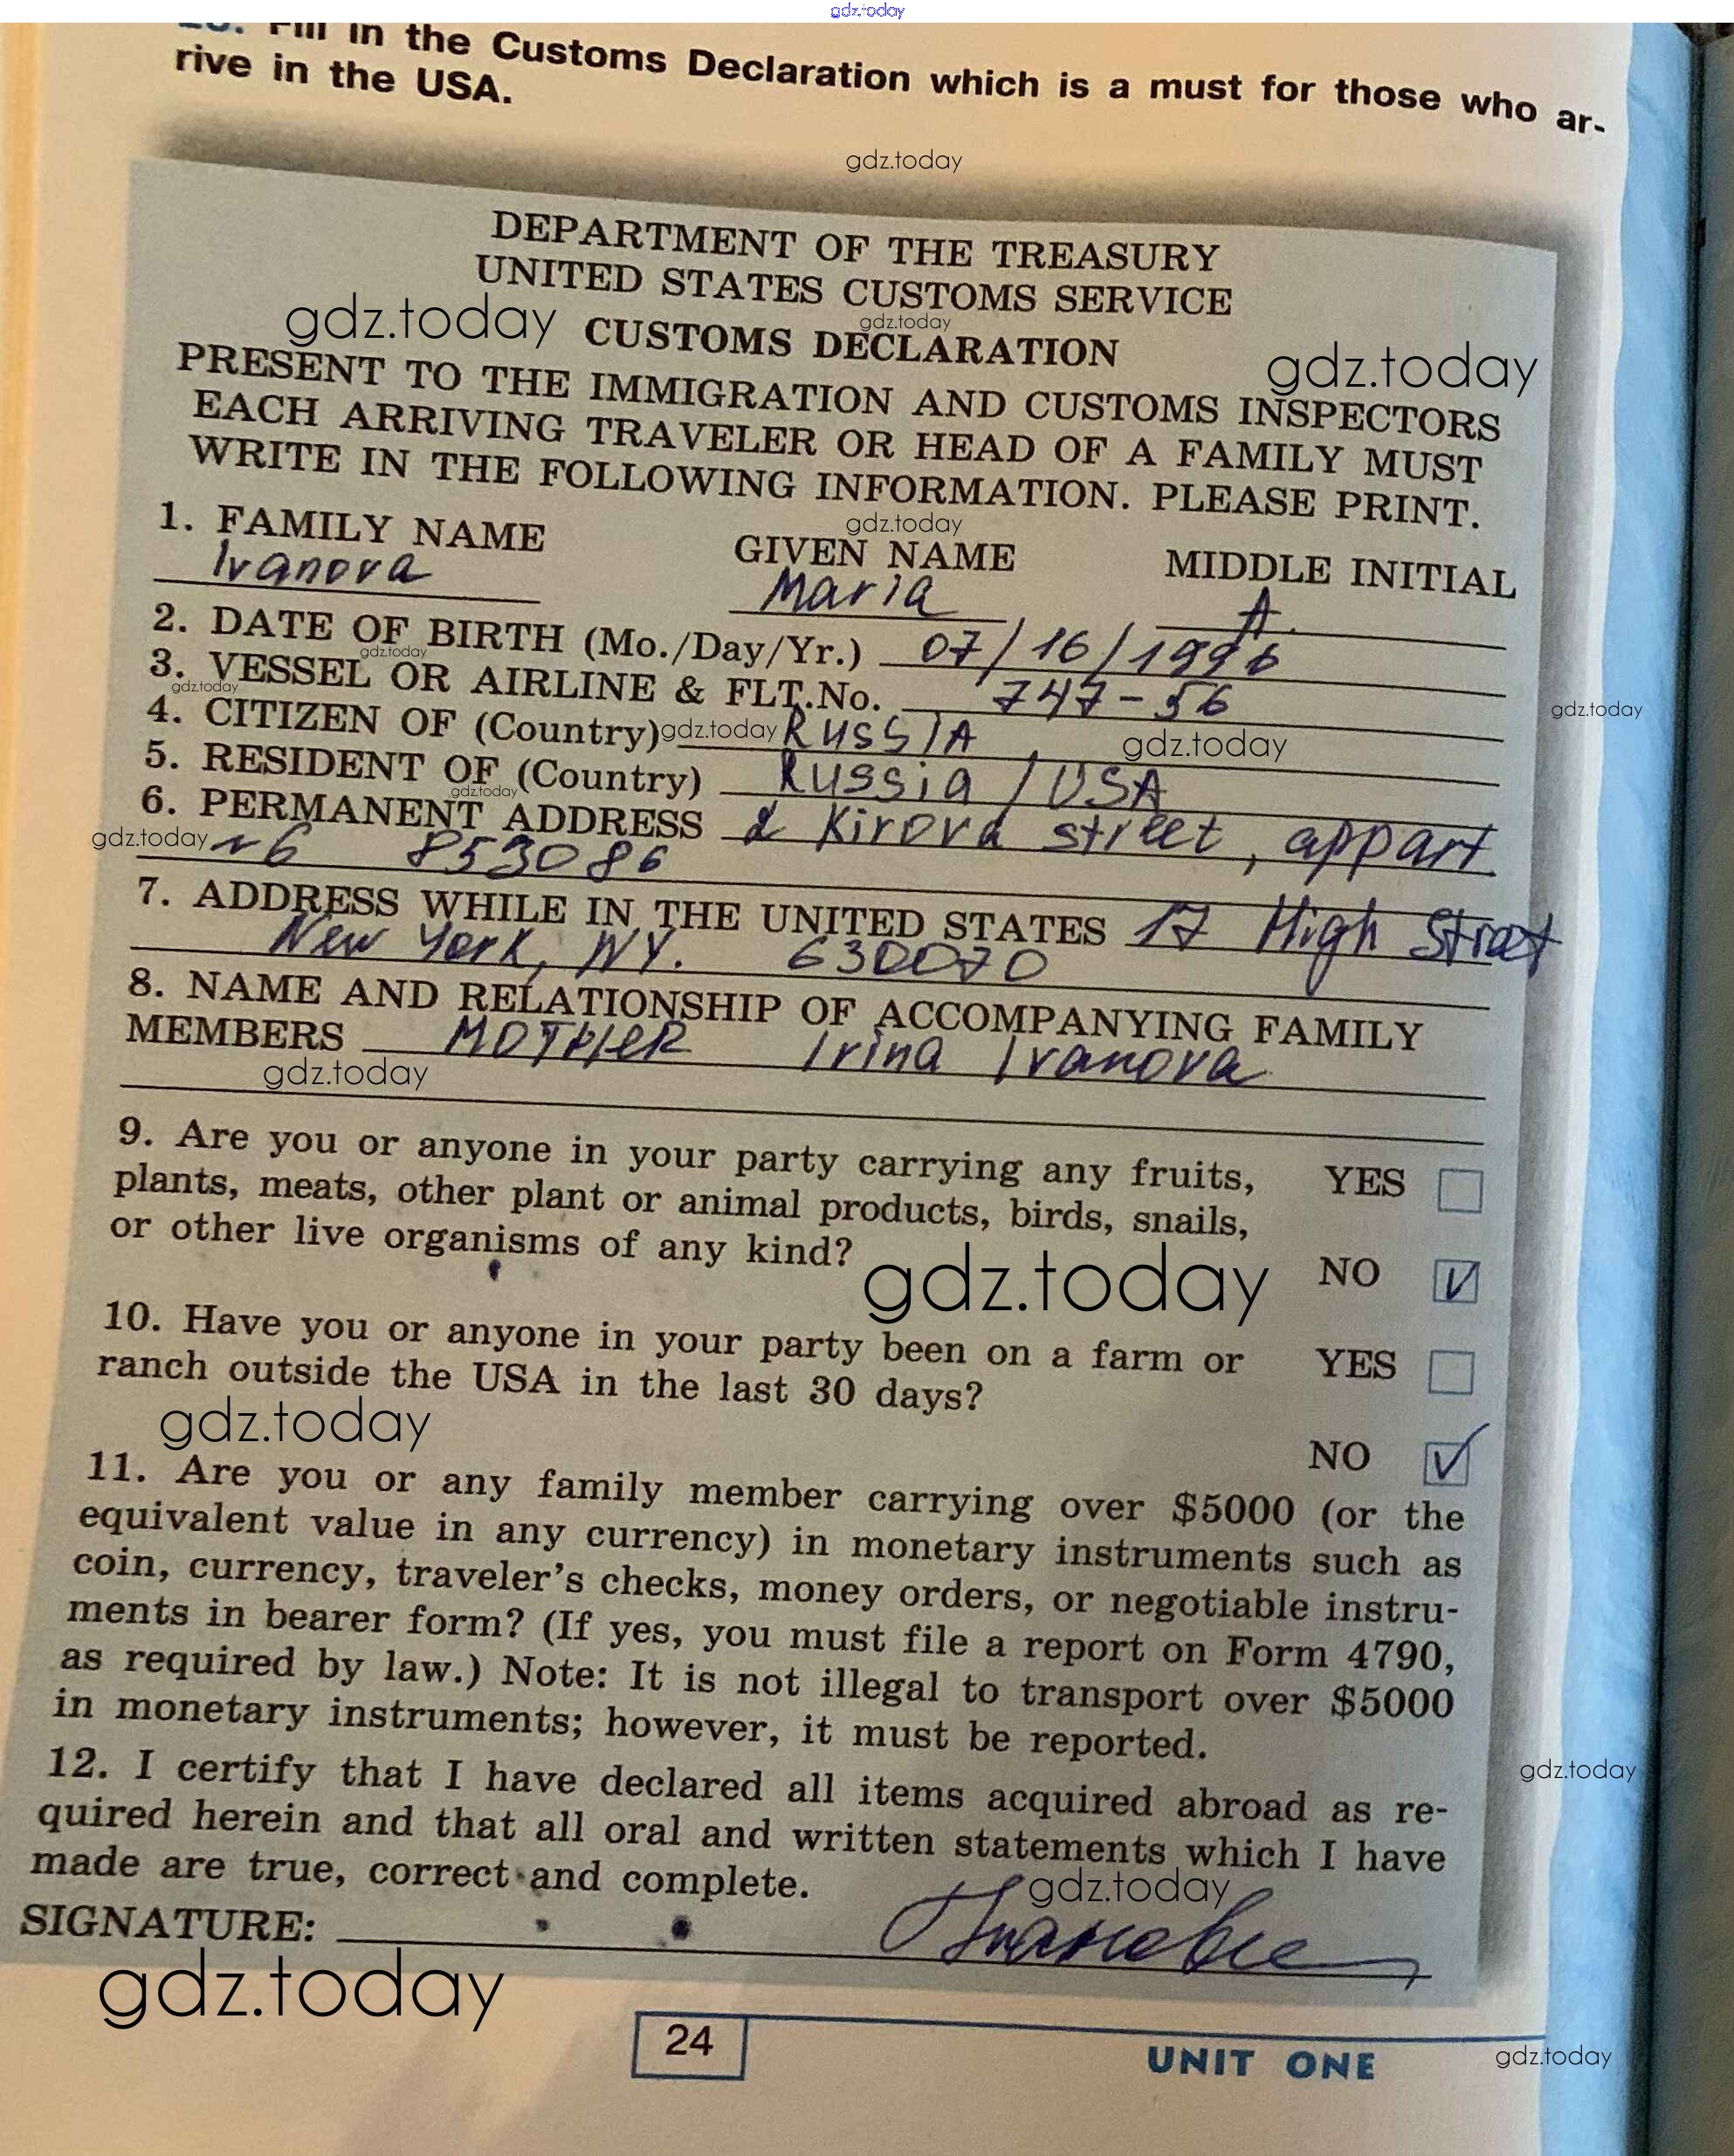 gdz.today
Fill in the Customs Declaration which is a must for those who ar-
rive in the USA.
gdz.today
DEPARTMENT OF THE TREASURY
UNITED STATES CUSTOMS SERVICE
gdz.today CUSTOMS DECLARATION gdz.today
gdz.today
PRESENT TO THE IMMIGRATION AND CUSTOMS INSPECTORS
EACH ARRIVING TRAVELER OR HEAD OF A FAMILY MUST
WRITE IN THE FOLLOWING INFORMATION. PLEASE PRINT.
gdz.today
1. FAMILY NAME GIVEN NAME MIDDLE INITIAL
Ivanova Maria A.
2. DATE OF BIRTH (Mo./Day/Yr.) 07/16/1996
gdz.today
3. VESSEL OR AIRLINE & FLT.No. 747-56
gdz.today gdz.today
4. CITIZEN OF (Country) gdz.today RUSSIA gdz.today
5. RESIDENT OF (Country) Russia / USA
gdz.today
6. PERMANENT ADDRESS Kirova street, appart.
gdz.today 6 853086
7. ADDRESS WHILE IN THE UNITED STATES 17 High Street
New York, NY. 630070
8. NAME AND RELATIONSHIP OF ACCOMPANYING FAMILY
MEMBERS MOTHER Irina Ivanova
gdz.today
9. Are you or anyone in your party carrying any fruits, YES
plants, meats, other plant or animal products, birds, snails,
or other live organisms of any kind? NO V
gdz.today
10. Have you or anyone in your party been on a farm or YES
ranch outside the USA in the last 30 days?
gdz.today NO V
11. Are you or any family member carrying over $5000 (or the
equivalent value in any currency) in monetary instruments such as
coin, currency, traveler's checks, money orders, or negotiable instru-
ments in bearer form? (If yes, you must file a report on Form 4790,
as required by law.) Note: It is not illegal to transport over $5000
in monetary instruments; however, it must be reported.
gdz.today
12. I certify that I have declared all items acquired abroad as re-
quired herein and that all oral and written statements which I have
made are true, correct and complete.
gdz.today
SIGNATURE:
gdz.today
24
UNIT ONE gdz.today